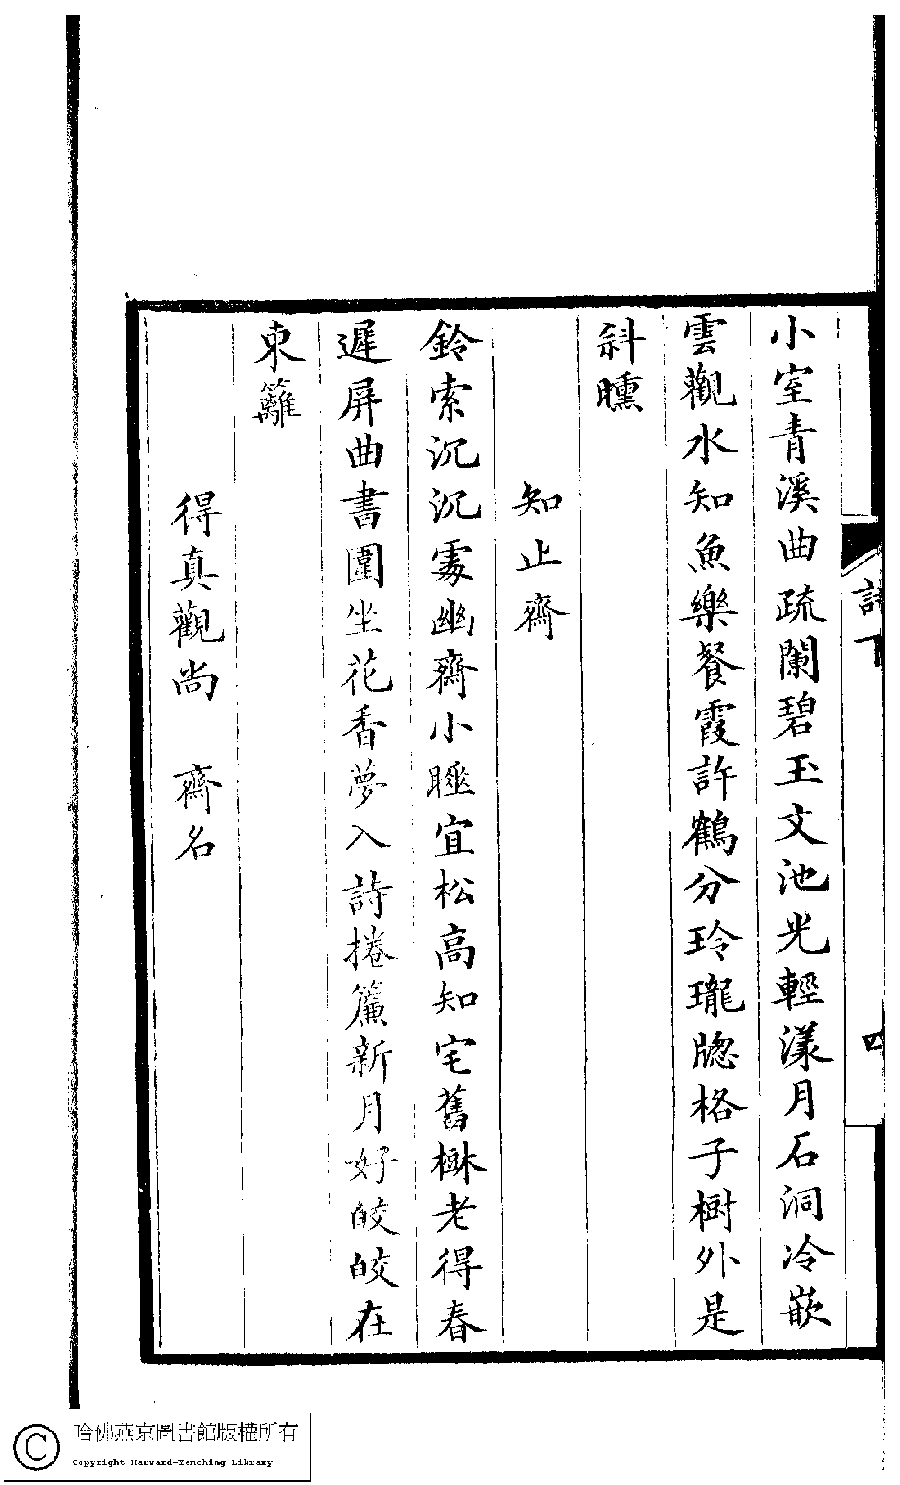 小室青溪曲疏闌碧玉文池光輕漾月石洞冷嵌
雲觀水知魚樂餐霞許鶴分玲瓏牕格子樹外是
斜曛
知止齋
鈴索沉沉處幽齋小睡宜松高知宅舊楙老得春
遲屏曲書圍坐花香夢入詩捲簾新月好皎皎在
東籬
得真觀尚　齋名
四
哈佛燕京圖書館版權所有
Copyright Harvard-Yenching Library